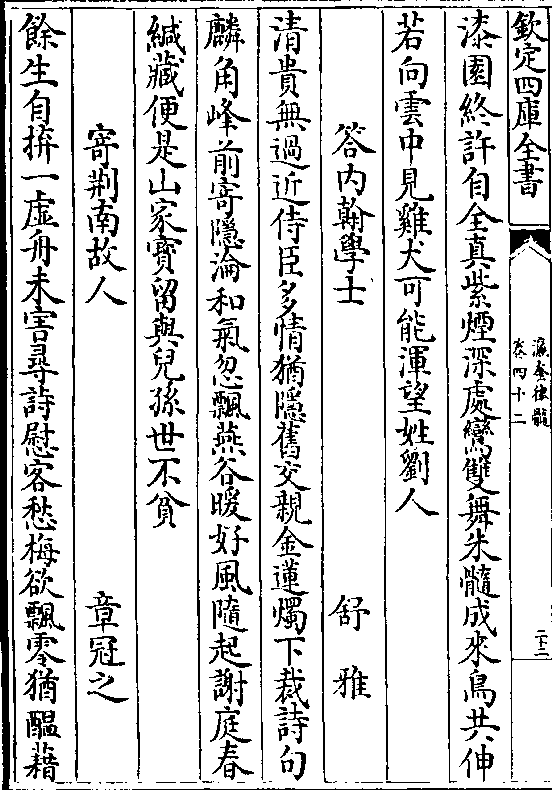 欽定四庫全書
瀛奎律髓
卷四十二
漆園終許自全真紫煙深處鸞雙舞朱髓成來鳥共伸
若向雲中見雞犬可能渾望姓劉人
答内翰學士
舒雅
清貴無過近侍臣多情猶隱舊交親金蓮燭下裁詩句
麟角峰前寄隱淪和氣忽飄燕谷暖好風隨起謝庭春
緘藏便是山家寳留與兒孫世不貧
寄荆南故人
章冠之
餘生自擠一虛舟未害尋詩慰客愁梅欲飄零猶醖藉